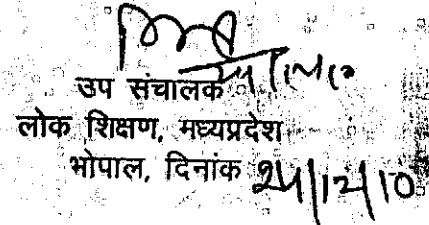 उप संचालक
लोक शिक्षण, मध्यप्रदेश
भोपाल, दिनांक 24/12/10